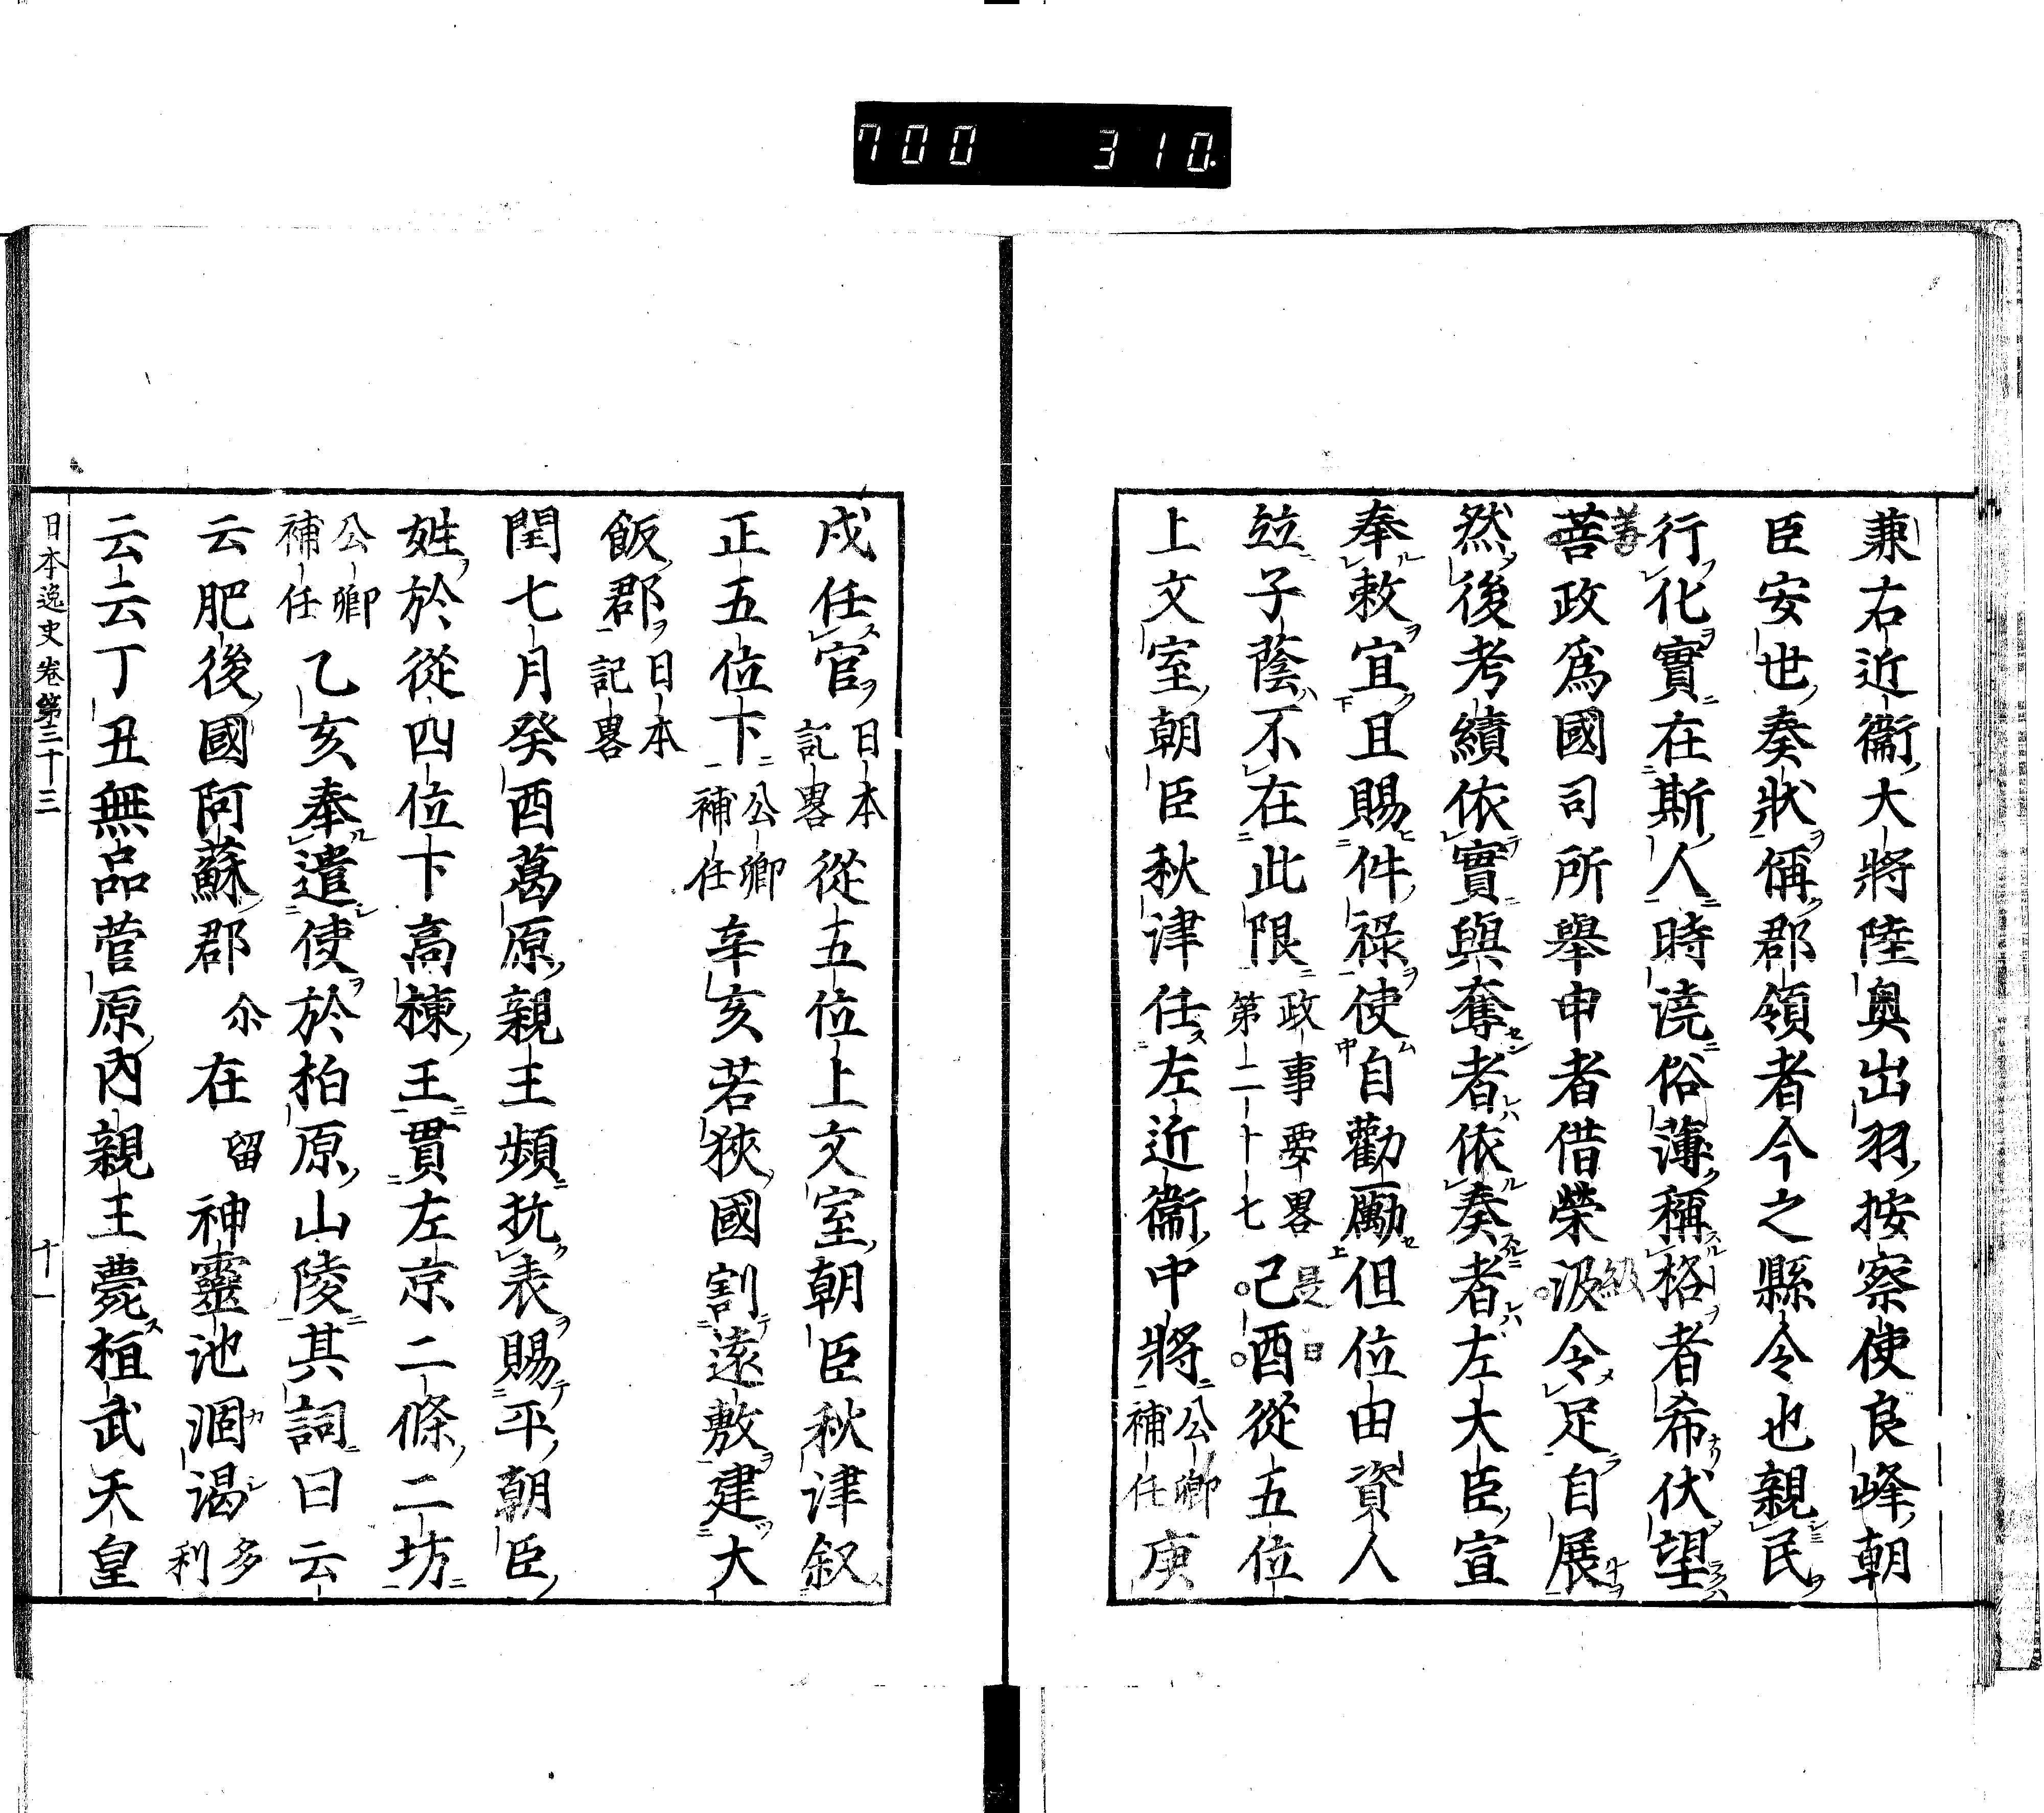 700 310
兼右近衞大將陸奥出羽按察使良峰朝
臣安世奏狀偁郡領者今之縣令也親民
行化實在斯人時澆俗薄稱格者希伏望
菩政爲國司所舉申者借榮汲令足自展
善
級
然後考績依實與奪者依奏者左大臣宣
奉敕宜且賜件祿使自勸勵但位田資人
竝子蔭不在此限政事要畧第二十七己酉從五位
是日
上文室朝臣秋津任左近衞中將公卿補任庚
戌任官日本記畧從五位上文室朝臣秋津叙
正五位下公卿補任辛亥若狹國割遠敷建大
飯郡日本記畧
閏七月癸酉葛原親王頻抗表賜平朝臣
姓於從四位下高棟王貫左京二條二坊
公卿補任乙亥奉遣使於柏原山陵其詞曰云
云肥後國阿蘇郡尒在留神靈池涸渴多利
云云丁丑無品菅原內親王薨桓武天皇
日本逸史卷第三十三 十一